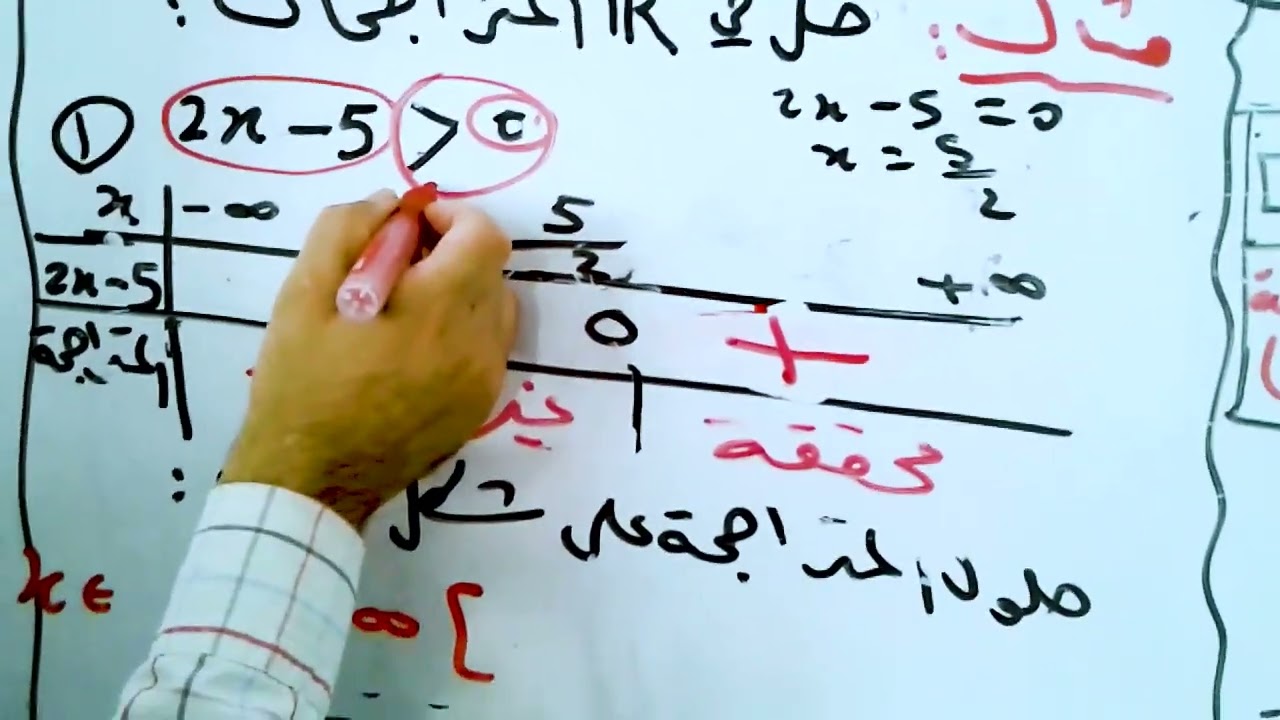 مثال: حل في IR المتراجحات:
① 2x - 5 > 0
2x - 5 = 0
x = 5/2
x | -∞ 5/2 +∞
2x-5 | 0 +
المتراجحة | محققة
حلول المتراجحة على شكل :
x ∈ ∞ [